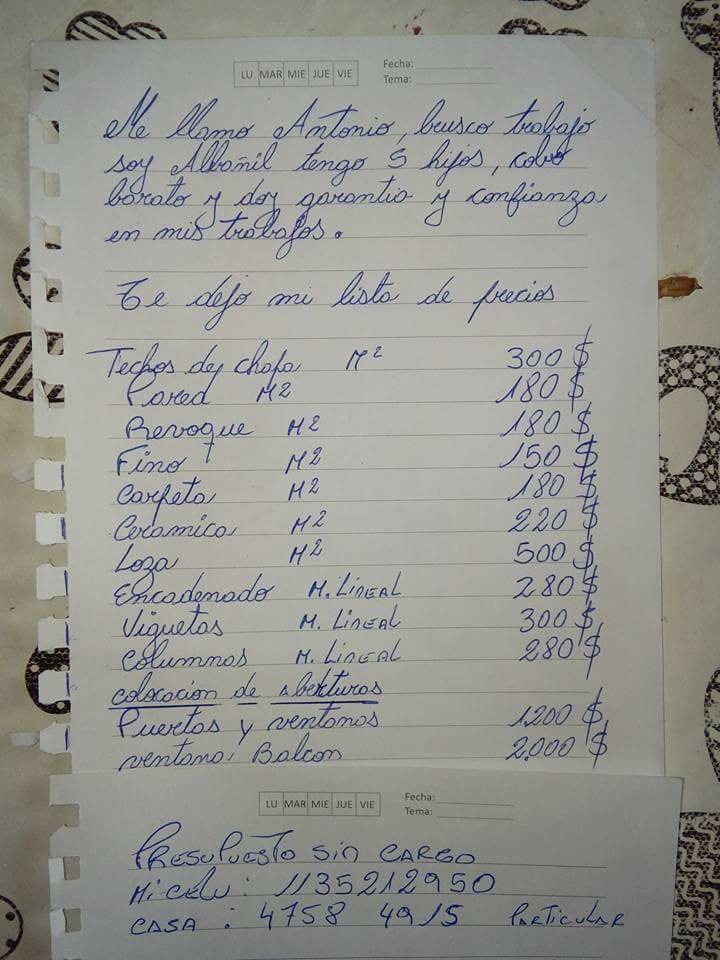 LU MAR MIE JUE VIE
Fecha:
Tema:
Me llamo Antonio, brusco trabajo
soy Albañil tengo 5 hijos, cobro
barato y doy garantia y confianza
en mis trabajos.
Te dejo mi lista de precios
Techos de chapa M² 300 $
Pared M2 180 $
Revoque M2 180 $
Fino M2 150 $
Carpeta M2 180 $
Ceramica M² 220 $
Loza M² 500 $
Encadenado M. Lineal 280 $
Viguetas M. Lineal 300 $
Columnas M. Lineal 280 $
colocacion de aberturas
Puertas y ventanas 1200 $
ventana Balcon 2.000 $
LU MAR MIE JUE VIE
Fecha:
Tema:
PRESUPUESTO SIN CARGO
Mi celu: 1135212950
CASA: 4758 4915 PARTICULAR